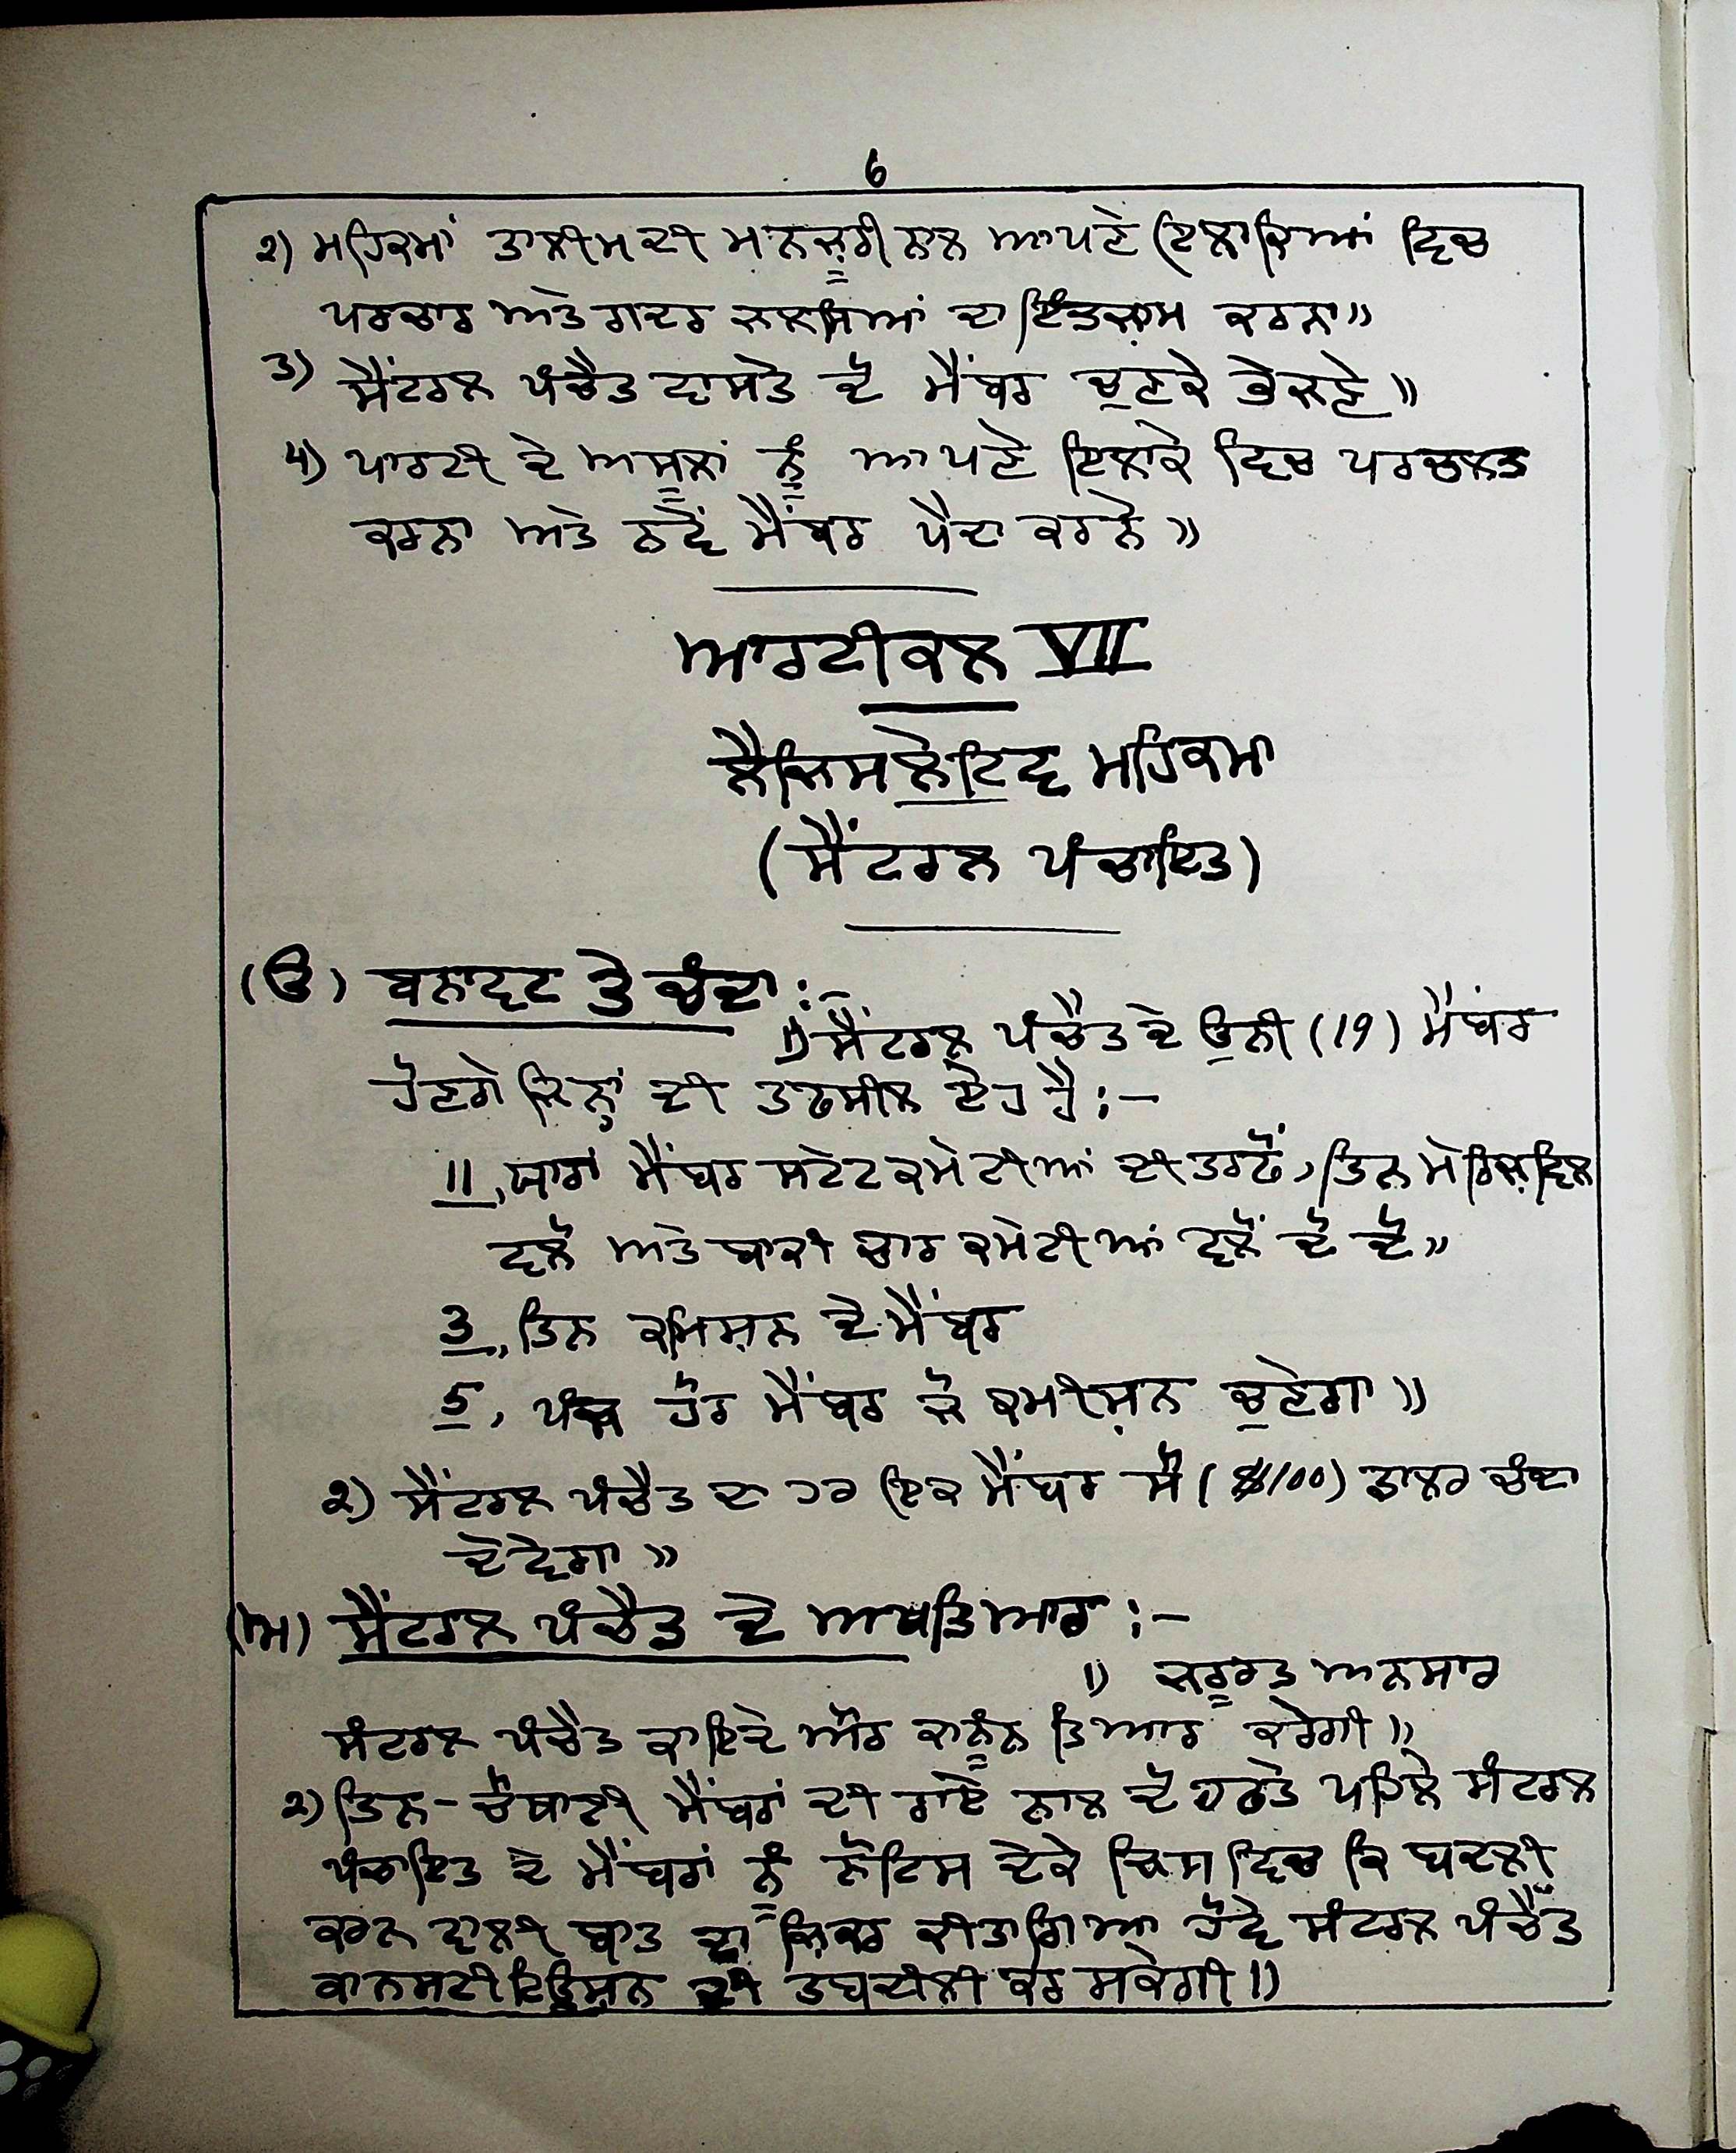 6
੨) ਮਹਿਕਮਾਂ ਤਾਲੀਮ ਦੀ ਮਨਜ਼ੂਰੀ ਨਾਲ ਆਪਣੇ ਇਲਾਕਿਆਂ ਵਿਚ
ਪਰਚਾਰ ਅਤੇ ਗਦਰ ਜਲਸਿਆਂ ਦਾ ਇੰਤਜ਼ਾਮ ਕਰਨਾ॥
੩) ਸੈਂਟਰਲ ਪੰਚੈਤ ਵਾਸਤੇ ਦੋ ਮੈਂਬਰ ਚੁਣਕੇ ਭੇਜਣੇ॥
੪) ਪਾਰਟੀ ਦੇ ਅਸੂਲਾਂ ਨੂੰ ਆਪਣੇ ਇਲਾਕੇ ਵਿਚ ਪਰਚਲਤ
ਕਰਨਾ ਅਤੇ ਨਵੇਂ ਮੈਂਬਰ ਪੈਦਾ ਕਰਨੇ॥
ਆਰਟੀਕਲ VII
ਲੈਜਿਸਲੇਟਿਵ ਮਹਿਕਮਾ
(ਸੈਂਟਰਲ ਪੰਚਾਇਤ)
(ੳ) ਬਨਾਵਟ ਤੇ ਚੰਦਾ :-
1) ਸੈਂਟਰਲ ਪੰਚੈਤ ਦੇ ਉਨੀ (19) ਮੈਂਬਰ
ਹੋਣਗੇ ਜਿਨ੍ਹਾਂ ਦੀ ਤਫਸੀਲ ਏਹ ਹੈ :-
11, ਯਾਰਾਂ ਮੈਂਬਰ ਸਟੇਟ ਕਮੇਟੀਆਂ ਦੀ ਤਰਫੋਂ, ਤਿਨ ਮੇਰਿਜ਼ਵਿਲ
ਵਲੋਂ ਅਤੇ ਬਾਕੀ ਚਾਰ ਕਮੇਟੀਆਂ ਵਲੋਂ ਦੋ ਦੋ॥
3, ਤਿਨ ਕਮਿਸ਼ਨ ਦੇ ਮੈਂਬਰ
5, ਪੰਜ ਹੋਰ ਮੈਂਬਰ ਜੋ ਕਮੀਸ਼ਨ ਚੁਣੇਗਾ॥
੨) ਸੈਂਟਰਲ ਪੰਚੈਤ ਦਾ ਹਰ ਇਕ ਮੈਂਬਰ ਸੌ ($100) ਡਾਲਰ ਚੰਦਾ
ਦੇਵੇਗਾ॥
(ਅ) ਸੈਂਟਰਲ ਪੰਚੈਤ ਦੇ ਅਖਤਿਆਰ :-
1) ਜਰੂਰਤ ਅਨਸਾਰ
ਸੰਟਰਲ ਪੰਚੈਤ ਕਾਇਦੇ ਔਰ ਕਾਨੂੰਨ ਤਿਆਰ ਕਰੇਗੀ॥
੨) ਤਿਨ-ਚੌਥਾਈ ਮੈਂਬਰਾਂ ਦੀ ਰਾਏ ਨਾਲ ਦੋ ਹਫਤੇ ਪਹਿਲੇ ਸੰਟਰਲ
ਪੰਚਾਇਤ ਦੇ ਮੈਂਬਰਾਂ ਨੂੰ ਨੋਟਿਸ ਦੇਕੇ ਜਿਸ ਵਿਚ ਕਿ ਬਦਲੀ
ਕਰਨ ਵਾਲੀ ਬਾਤ ਦਾ ਜ਼ਿਕਰ ਕੀਤਾ ਗਿਆ ਹੋਵੇ ਸੰਟਰਲ ਪੰਚੈਤ
ਕਾਨਸਟੀਟਿਊਸ਼ਨ ਦੀ ਤਬਦੀਲੀ ਕਰ ਸਕੇਗੀ॥